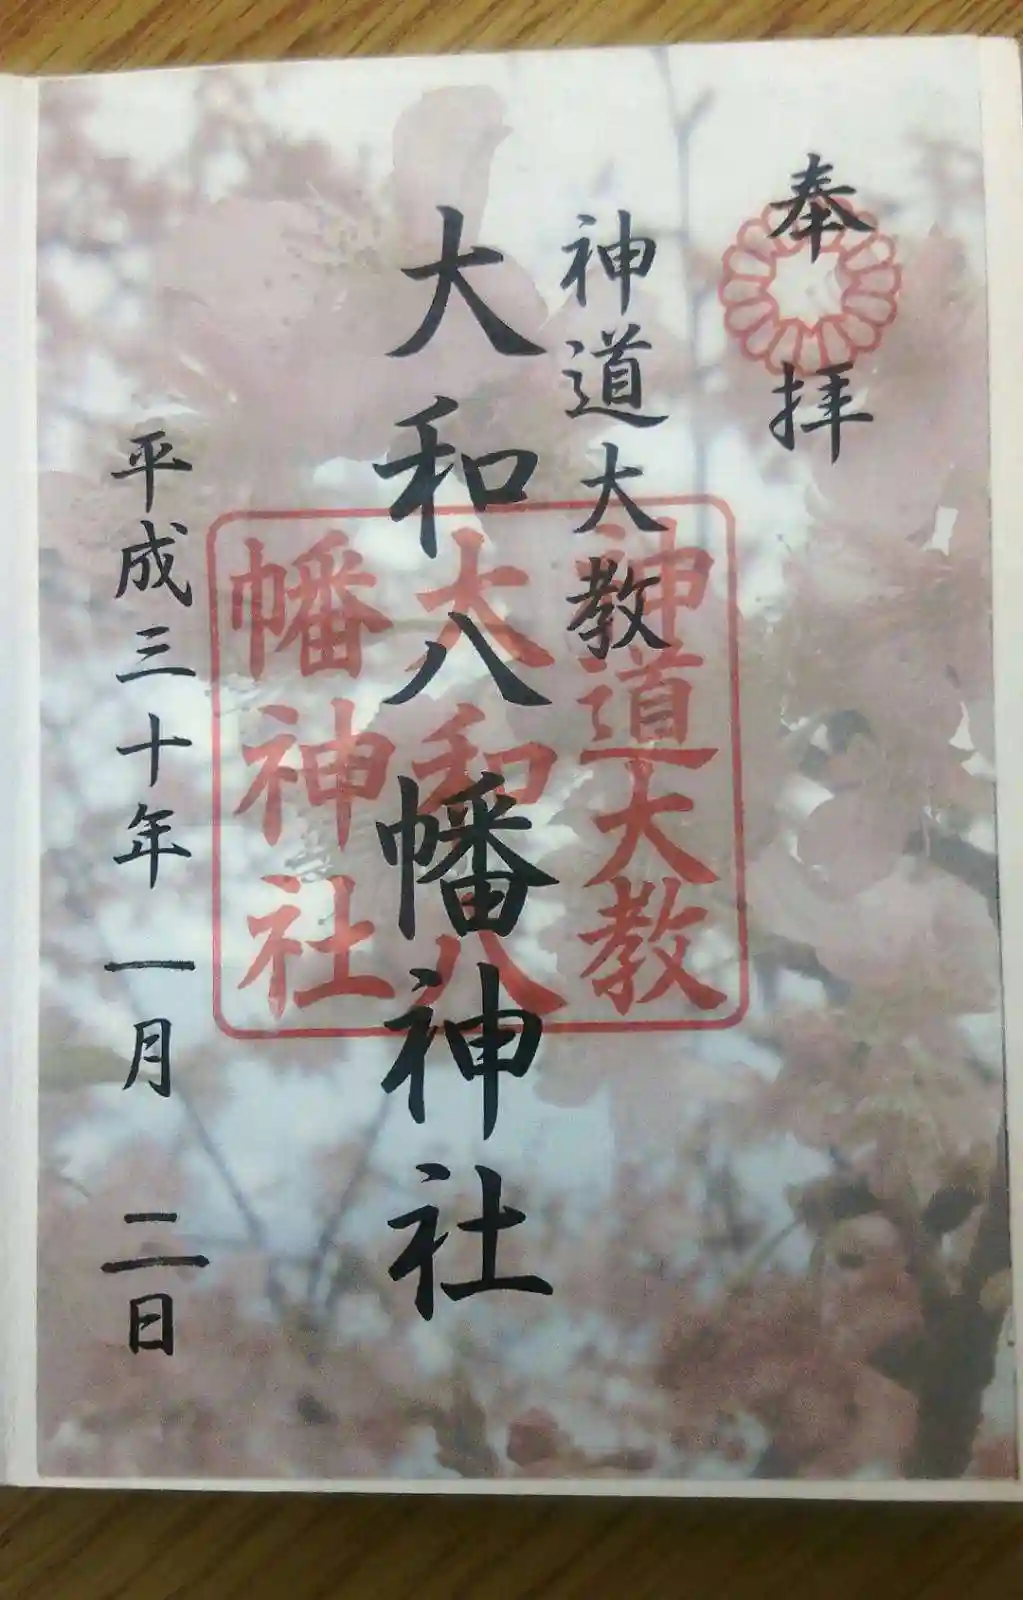 奉拝
神道大教
大和八幡神社
平成三十年一月二日
神道大教
大和八
幡神社